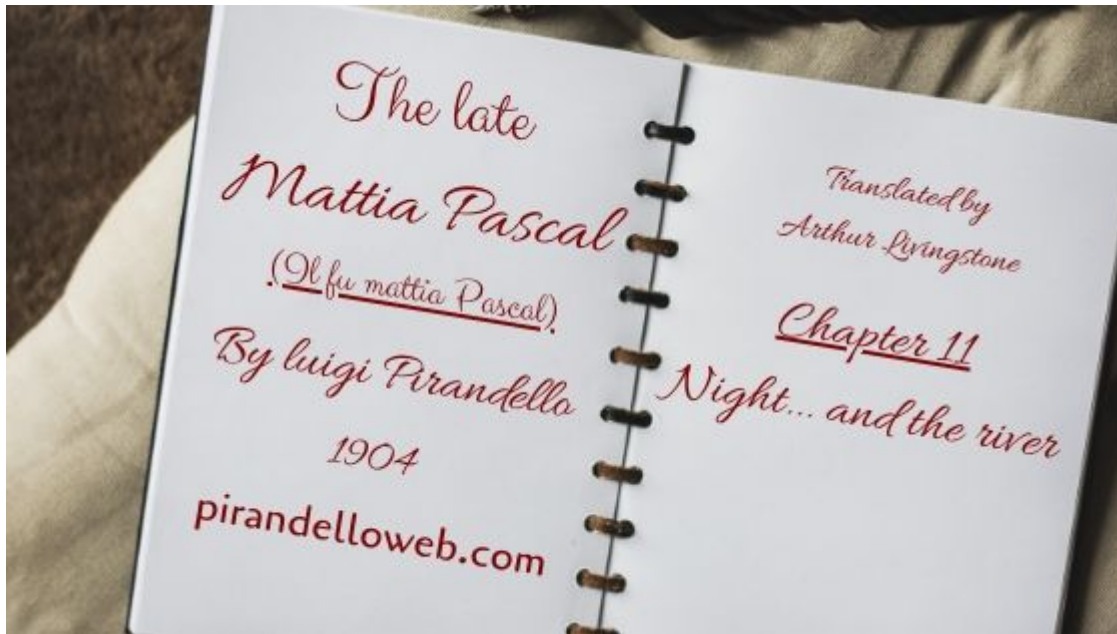 The late
Mattia Pascal
(Il fu mattia Pascal)
By luigi Pirandello
1904
pirandelloweb.com
Translated by
Arthur Livingstone
Chapter 11
Night... and the river